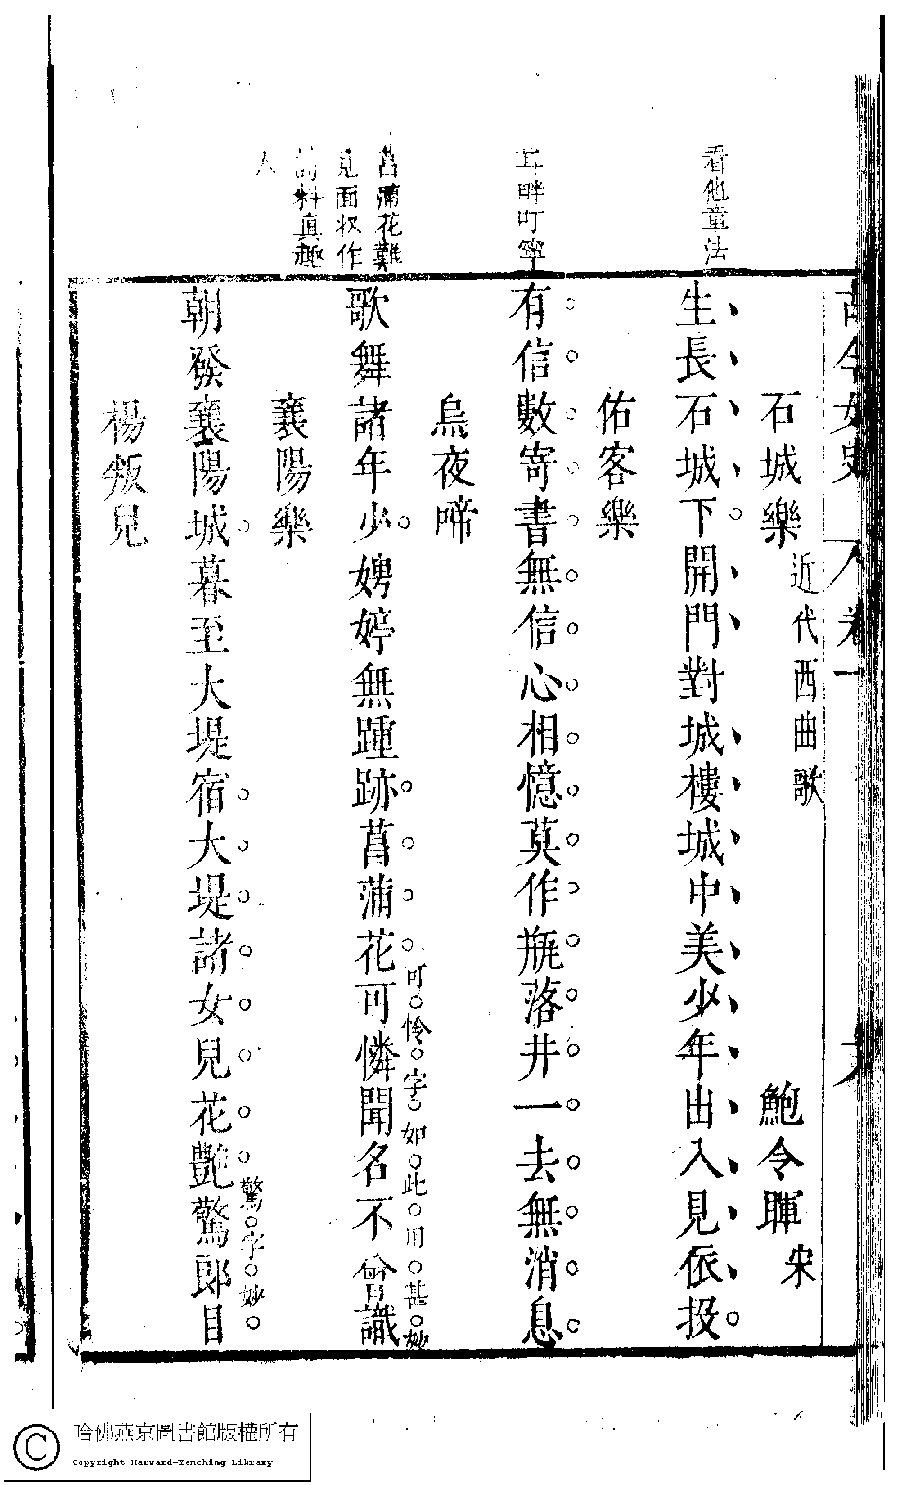 古今女史　卷一
石城樂近代西曲歌　鮑令暉宋
生長石城下開門對城樓城中美少年出入見依投
看他童法
佑客樂
有信數寄書無信心相憶莫作瓶落井一去無消息
耳畔叮寧
烏夜啼
歌舞諸年少娉婷無踵跡菖蒲花可憐聞名不曾識可憐字如此用甚妙
菖蒲花難
見面収作
詩料真趣
人
襄陽樂
朝發襄陽城暮至大堤宿大堤諸女兒花艷驚郎目驚字妙
楊叛兒
哈佛燕京圖書館版權所有
Copyright Harvard-Yenching Library